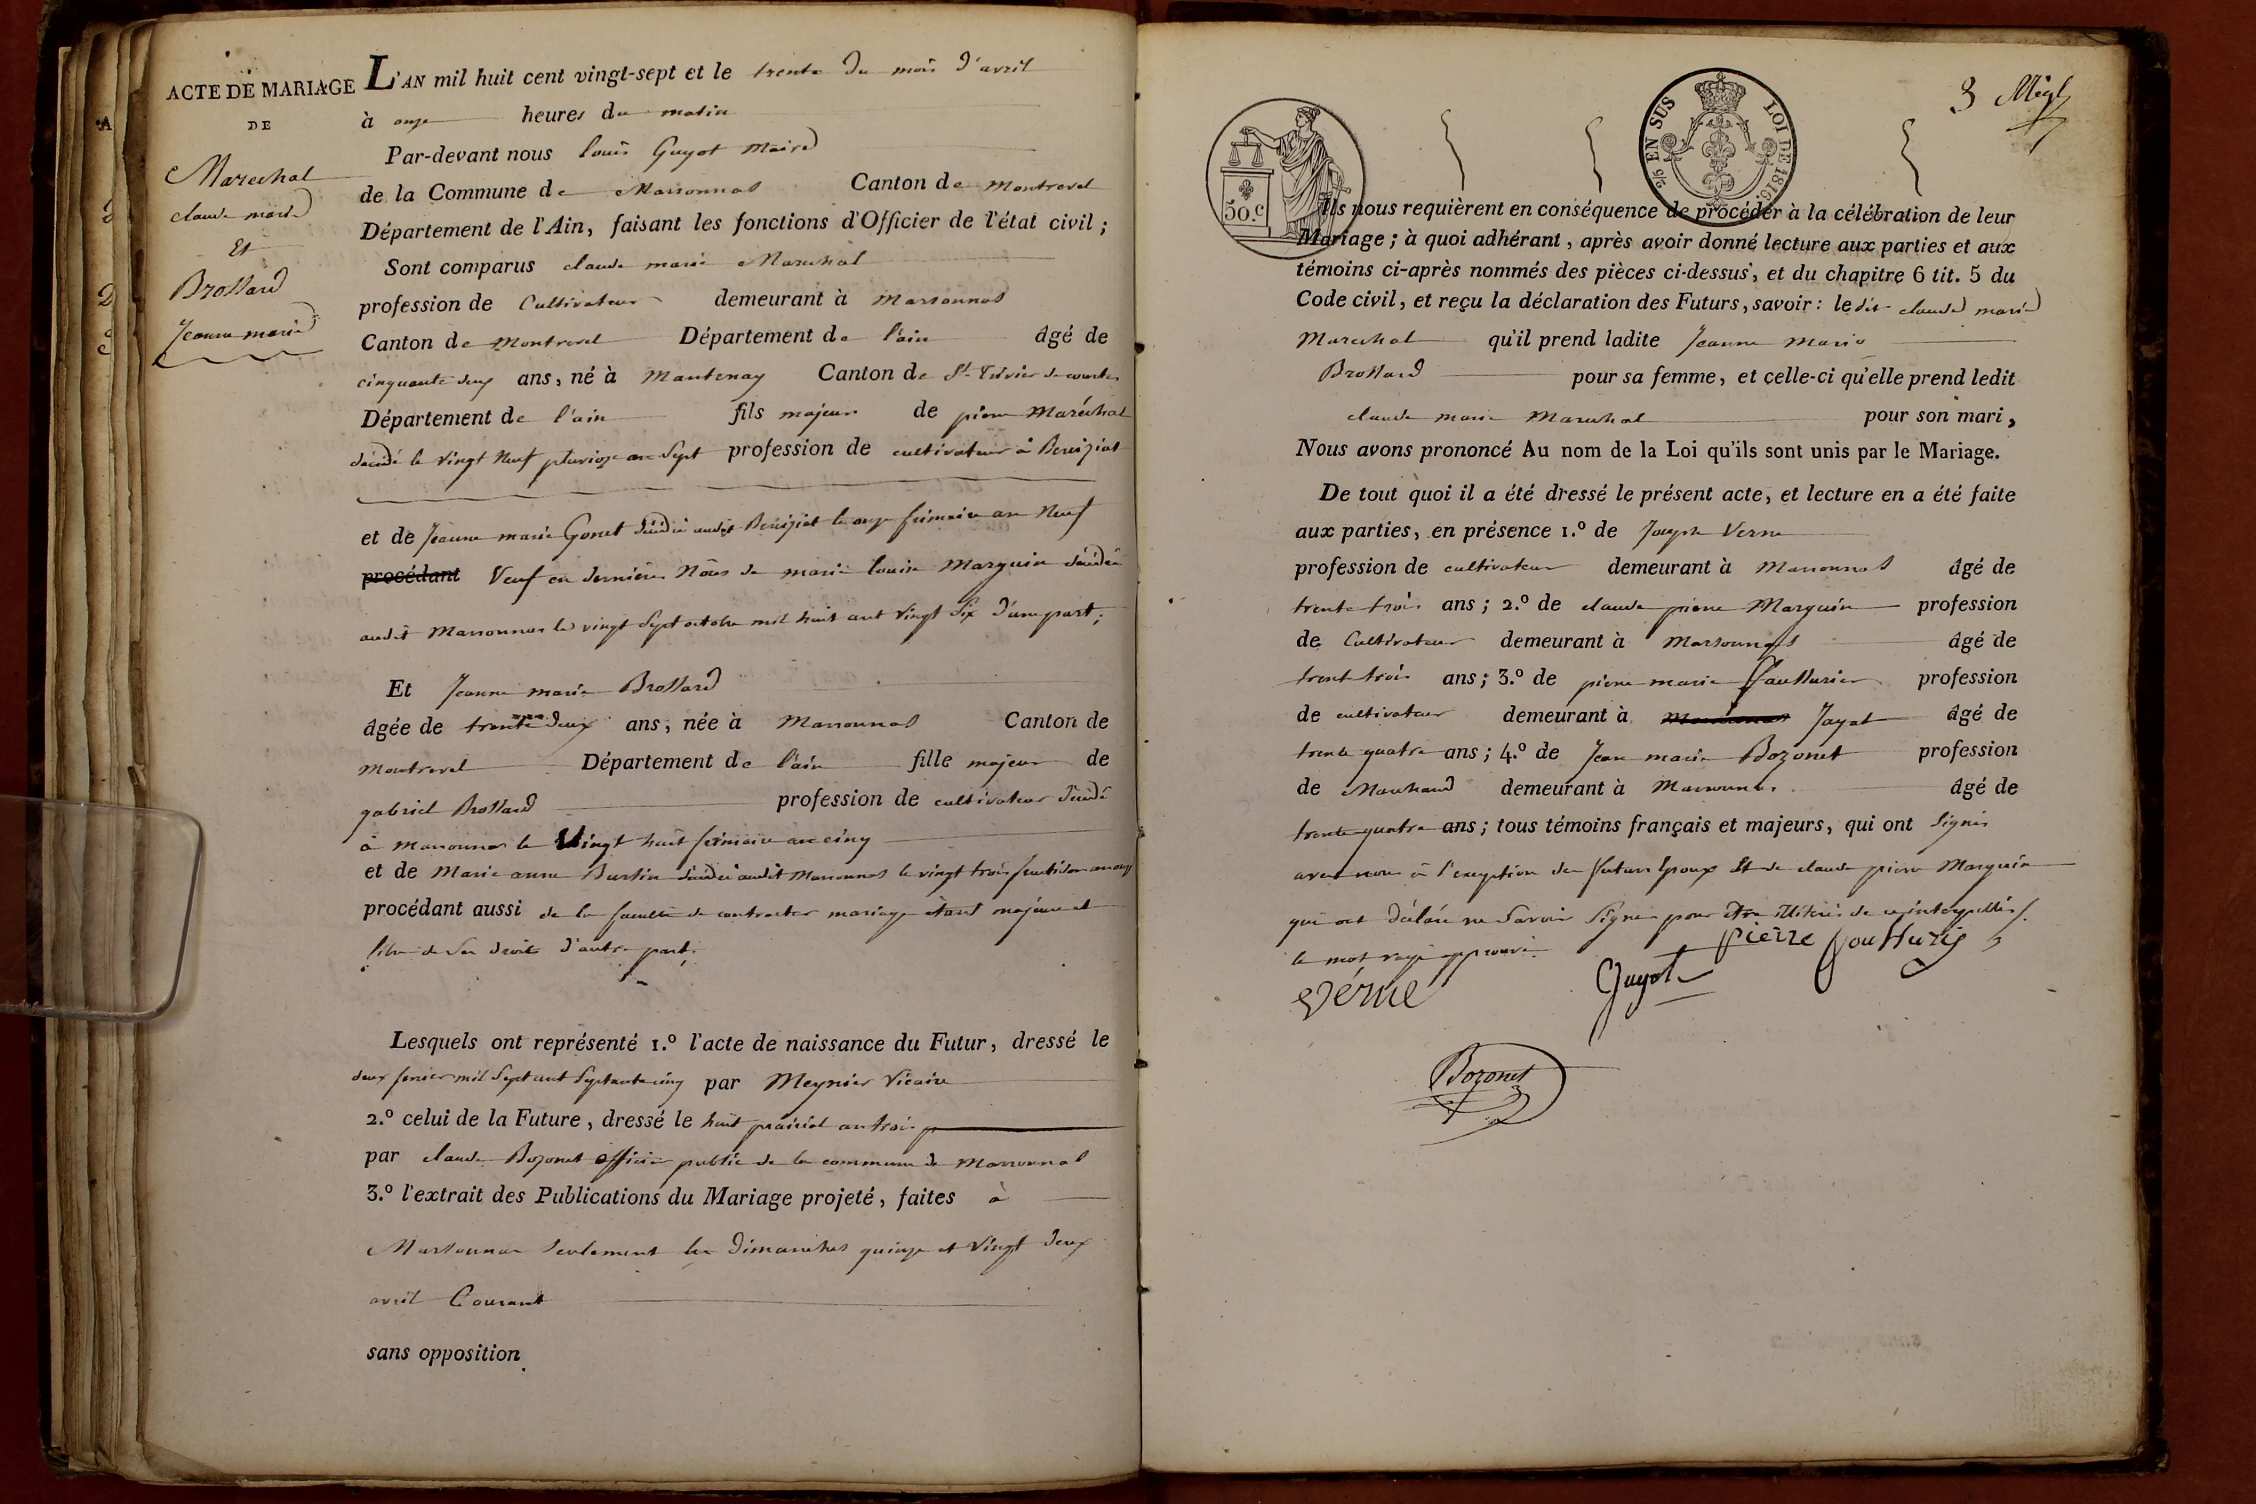 ACTE DE MARIAGE
DE
Marechal
claude marie
Et
Brossard
Jeanne marie
L'AN mil huit cent vingt-sept et le trente du mois d'avril
à onze heures du matin
Par-devant nous Louis Guyot Maire
de la Commune de Marsonnas Canton de Montrevel
Département de l'Ain, faisant les fonctions d'Officier de l'état civil ;
Sont comparus claude marie Marechal
profession de Cultivateur demeurant à Marsonnas
Canton de Montrevel Département de l'ain âgé de
cinquante deux ans, né à Mantenay Canton de St. Trivier de courtes
Département de l'ain fils majeur de pierre Maréchal
décédé le vingt Neuf pluviose an Sept profession de cultivateur à Bereiziat
et de Jeanne marie Gonet décédée audit Bereiziat le onze frimaire an Neuf
procédant Veuf en dernières Nôces de marie louise Marguin décédée
audit Marsonnas le vingt Sept octobre mil huit cent vingt Six d'une part ;
Et Jeanne marie Brossard
âgée de trente deux ans, née à Marsonnas Canton de
Montrevel Département de l'ain fille majeur de
gabriel Brossard profession de cultivateur décédé
à Marsonnas le Vingt huit frimaire an cinq
et de Marie anne Burtin décédée audit Marsonnas le vingt trois fructidor an onze
procédant aussi de la faculté de contracter mariage étant majeure et
libre de Ses droits d'autre part.
Lesquels ont représenté 1.º l'acte de naissance du Futur, dressé le
deux fevrier mil Sept cent Septante cinq par Meynier Vicaire
2.º celui de la Future, dressé le huit prairial an trois
par claude Bozonet officier public de la commune de Marsonnas
3.º l'extrait des Publications du Mariage projeté, faites à
Marsonnas Seulement les Dimanches quinze et Vingt deux
avril Courant
sans opposition
3
50.C
2/5 EN SUS LOI DE 1816.
Ils nous requièrent en conséquence de procéder à la célébration de leur
Mariage ; à quoi adhérant, après avoir donné lecture aux parties et aux
témoins ci-après nommés des pièces ci-dessus, et du chapitre 6 tit. 5 du
Code civil, et reçu la déclaration des Futurs, savoir : ledit claude marie
Marechal qu'il prend ladite Jeanne Marie
Brossard pour sa femme, et celle-ci qu'elle prend ledit
claude marie Marechal pour son mari,
Nous avons prononcé Au nom de la Loi qu'ils sont unis par le Mariage.
De tout quoi il a été dressé le présent acte, et lecture en a été faite
aux parties, en présence 1.º de Joseph Verne
profession de cultivateur demeurant à Marsonnas âgé de
trente trois ans ; 2.º de claude pierre Marguin profession
de Cultivateur demeurant à Marsonnas âgé de
trente trois ans ; 3.º de pierre marie profession
de cultivateur demeurant à Marsonnas Jayat âgé de
trente quatre ans ; 4.º de Jean marie Bozonet profession
de Marchand demeurant à Marsonnas âgé de
trente quatre ans ; tous témoins français et majeurs, qui ont Signés
avec nous à l'exception des futurs Epoux Et de claude pierre Marguin
qui ont déclaré ne Savoir Signer pour être illitérés de ce interpellés.
le mot rayé approuvé.
pierre
Verne
Guyot
Bozonet